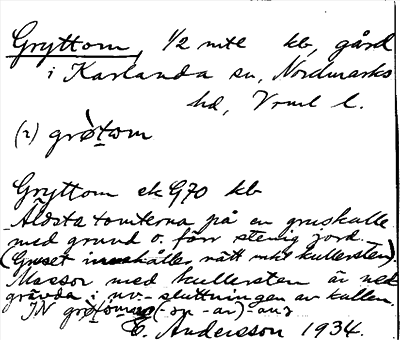 Gryttom, 1/2 mtl kb, gård
i Karlanda sn, Nordmarks
hd, Vrml l.
(r) grø̀tom
Gryttom ek G70 kb
Äldsta tomterna på en gruskulle
med grund o. förr stenig jord.
(Gruset innehåller rätt mkt kullersten).
Massor med kullersten är ned
grävda i nv-sluttningen av kullen.
IN
E. Andersson 1934.